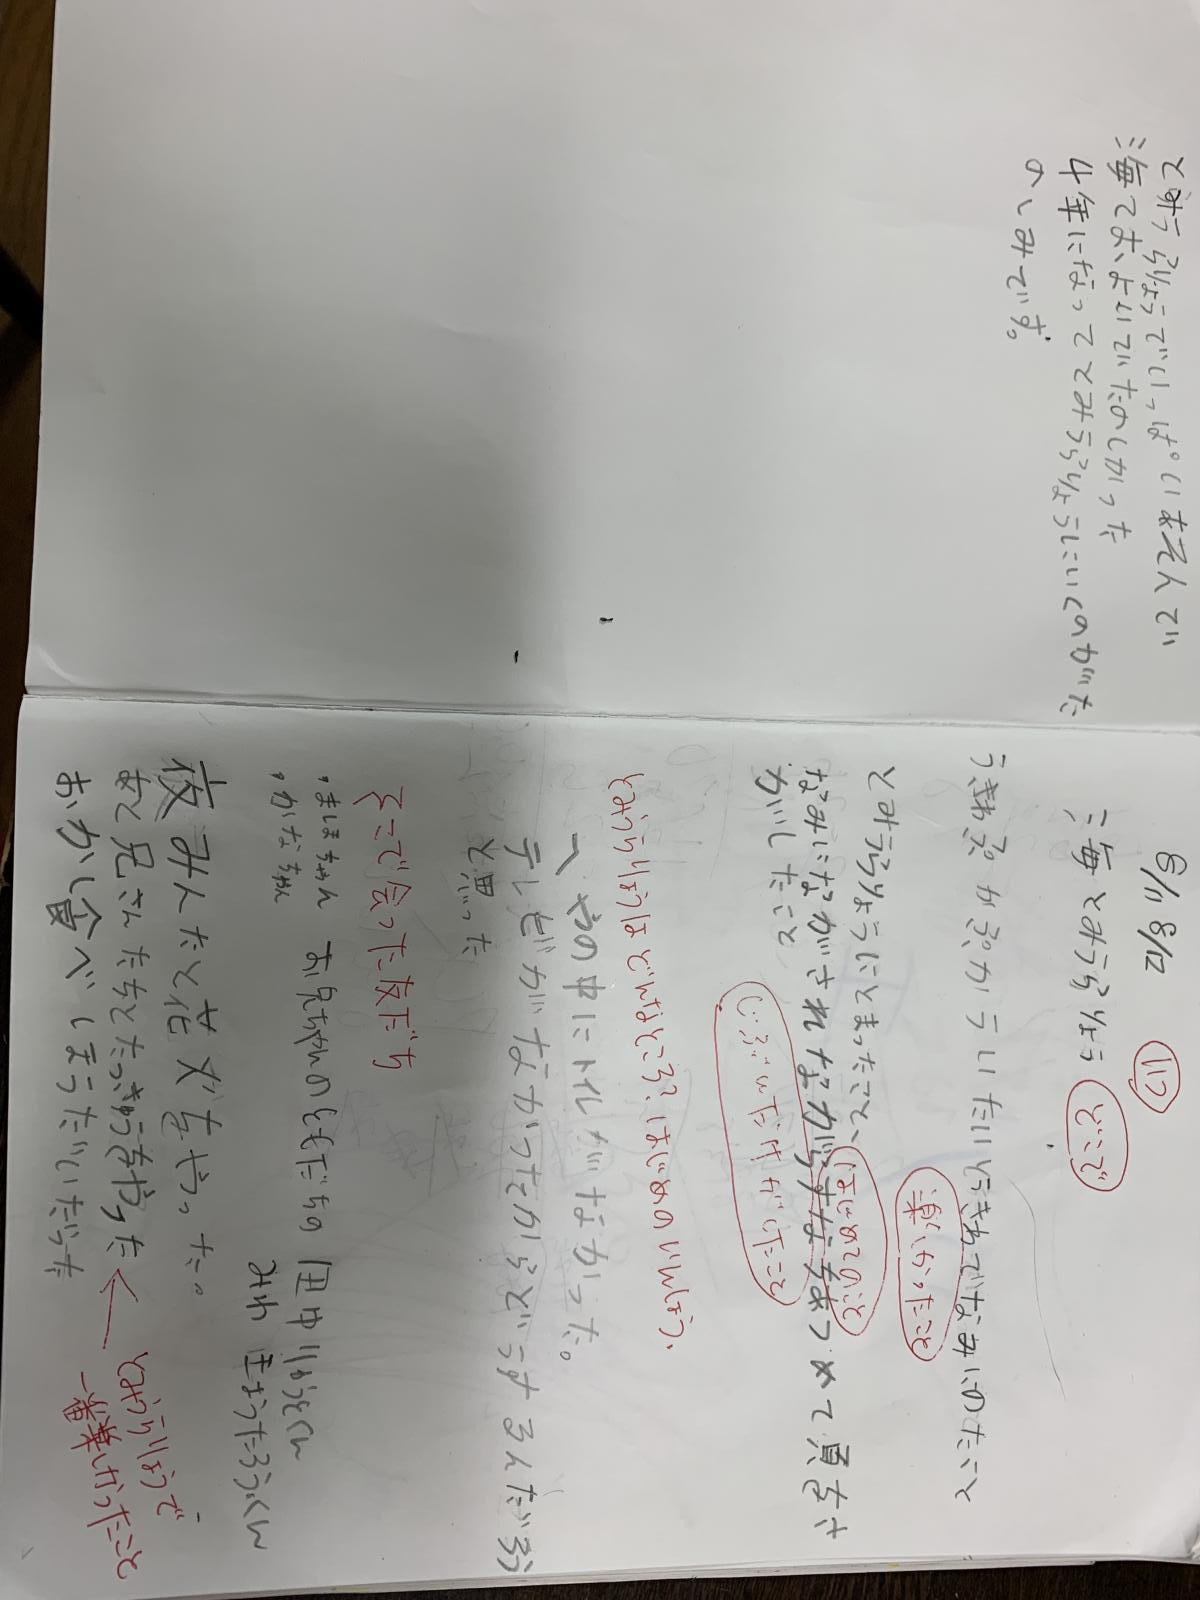 8/11 8/12 いつ
海とみうらりょう どこ
うきわでなみにのたこと
楽しかったこと
とみうらりょうにとまったこと、
なみにながされながらすなをあつめて貝をさ
がしたこと
じぶんだけがしたこと
とみうらりょうはどんなところ?はじめのいんしょう、
へやの中にトイレがなかった。
テレビがなかったからどうするんだろう
と思った
そこで会った友だち
・ましまちゃん お兄ちゃんのともだちの 田中りゅうとくん
・かなちゃん みわ きょうたろうくん
夜みんなと花火をやった。
あと兄さんたちとたっきゅうをやった ← とみうらりょうで
おかし食べほうだいだった 一番楽しかったこと
とみうらりょうでいっぱいあそんで
海でおよいでたのしかった
4年になってとみうらりょうにいくのがた
のしみです。